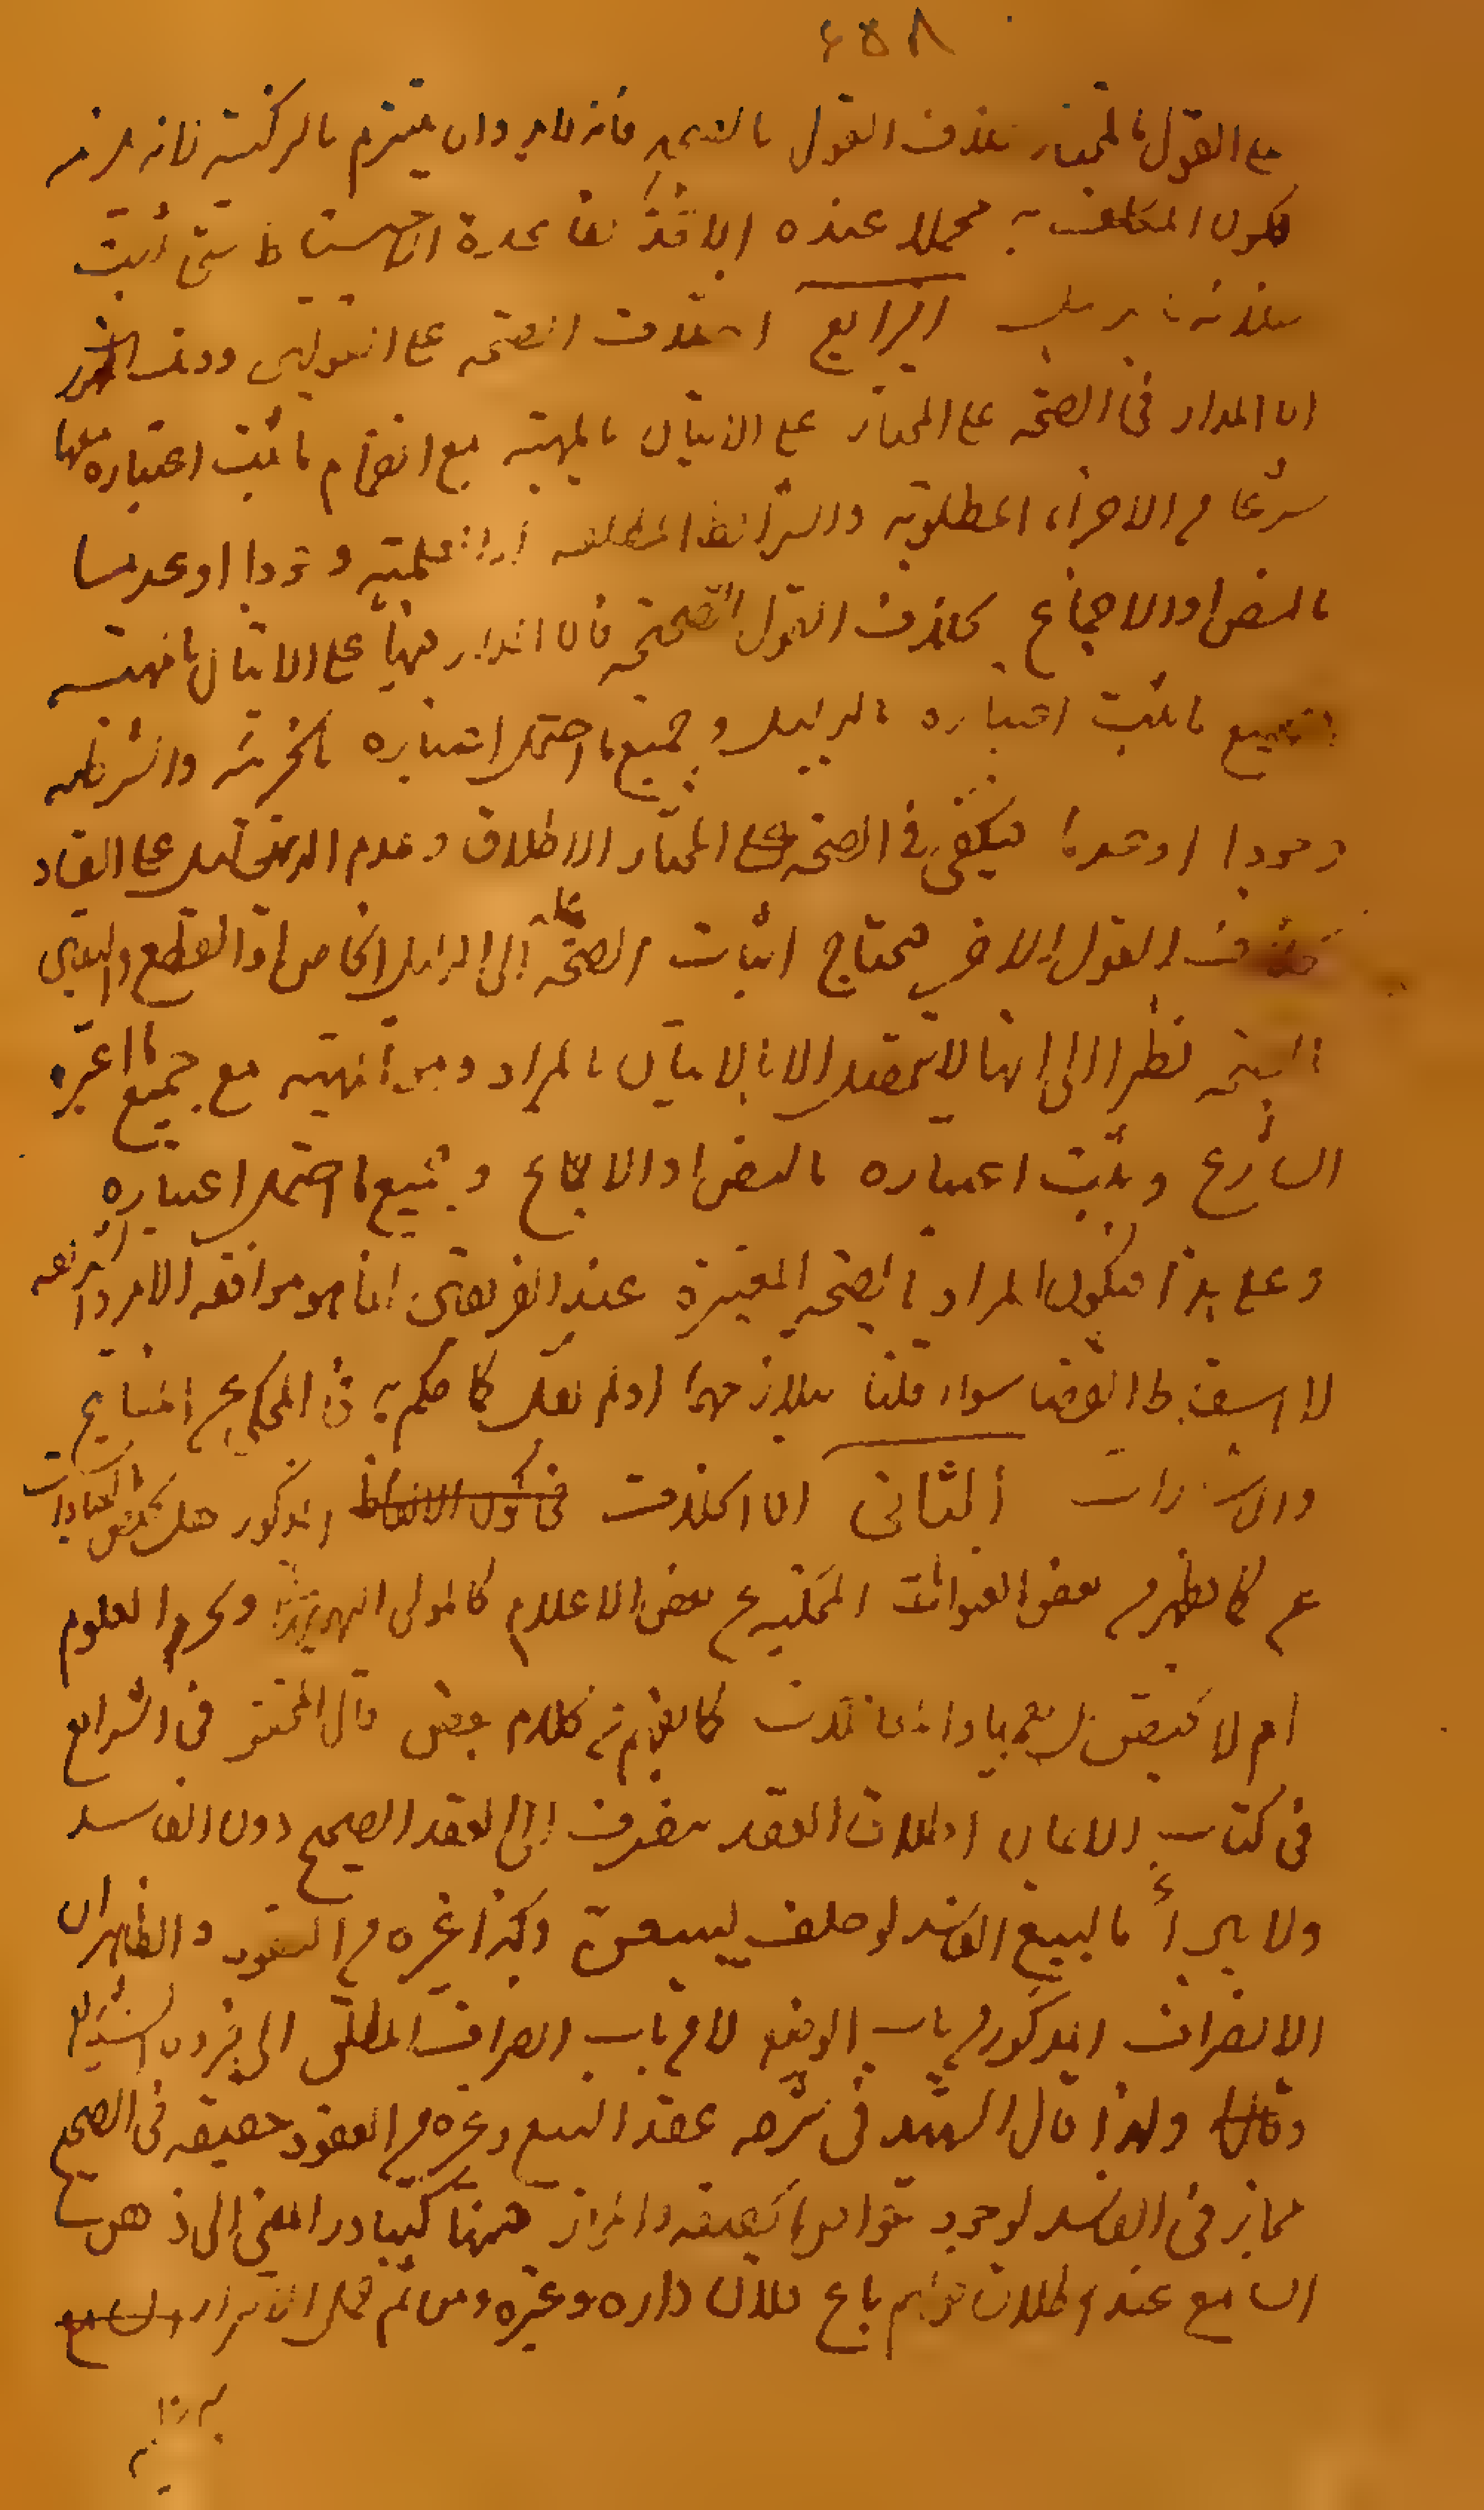 ٤٥٨
على القول بالمختار بخلاف القول بالصحيح فانه لا بد وان يلتزم بالركنية فانه
فيكون المكلف به مجملا عنده اخذا بقاعدة الاحتياط حتى يثبت
خلافه بالدليل الرابع اختلاف الصحة على القولين
ان المدار في الصحة على المختار على الاتيان بالمهية مع انضمام ما ثبت اعتباره معها
شرعا من الاجزاء المطلوبة والشرائط المطلقه او العلمية وجودا او عدما
بالنص او الاجماع بخلاف القول بالصحيح فان المدار فيها على الاتيان بالمهية
بجميع ما ثبت اعتباره بالدليل وجميع ما احتمل اعتباره بالجزئية والشرطية
وجودا او عدما فيكفي في الصحة على المختار الاطلاق وعدم الدليل على الفساد
بخلاف القول الاخر فيحتاج اثبات الصحة الى الدليل الخاص او القطع واليقين
بالصحة نظرا الى انها لا تحصل الا بالاتيان بالمراد وهو المهية مع جميع ما اعتبره
الشارع وثبت اعتباره بالنص او الاجماع وجميع ما احتمل اعتباره
وعلى هذا فيكون المراد بالصحة المعتبرة عند الفريقين انما هو موافقه الامر
لا اسقاط القضا سواء قلنا بتلازمهما او لم نقل كما حكم به في المحكي عن المفاتيح
والاشارات الثاني ان الخلاف في كون الالفاظ المذكور هل يختص بالعبادات
عم كما يظهر من بعض العنوانات المحكيه عن بعض الاعلام كالمولى البهبهاني وبحر العلوم
ام لا يختص بل يعم المعاملات كما يظهر من كلام بعض قال المحقق في الشرايع
في كتاب الايمان اطلاق العقد ينصرف الى العقد الصحيح دون الفاسد
ولا يبرأ بالبيع الفاسد لو حلف ليبيعن وكذا غيره من العقود والظاهر ان
الانصراف المذكور من باب الوضع لا من باب انصراف المطلق الى فرده الشايع
وقال ولذا قال الشهيد في شرحه عقد البيع وغيره من العقود حقيقه في الصحيح
مجاز في الفاسد لوجود خواص الحقيقه والمجاز فيهما كتبادر المعنى الى ذهن
السامع عند اطلاق قولهم باع فلان داره وغيره ومن ثم حمل الاقرار السامع